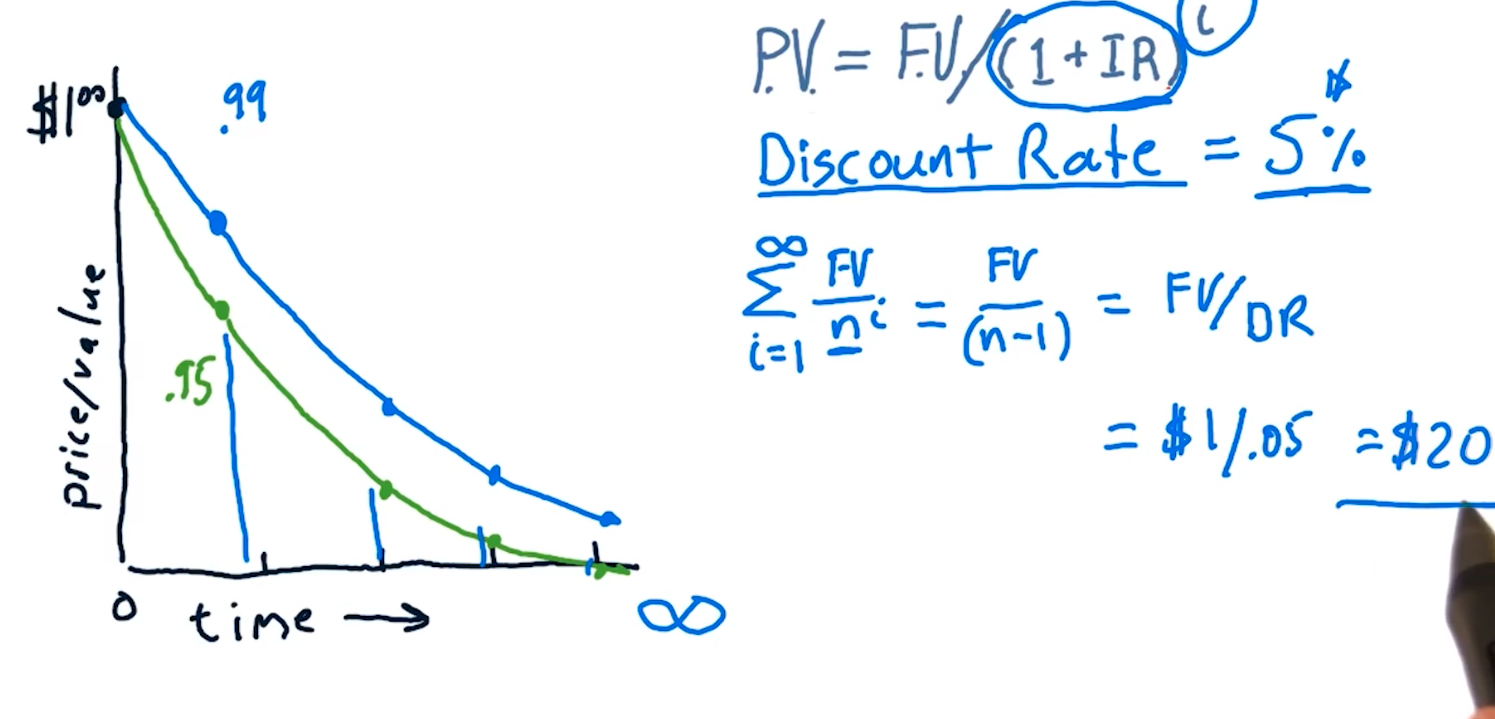 $1⁰⁰
.99
.95
price/value
0 time →
∞
P.V. = F.V./(1+IR)ⁱ
Discount Rate = 5%
∑ i=1 ∞ FV/nⁱ = FV/(n-1) = FV/DR
= $1/.05 = $20